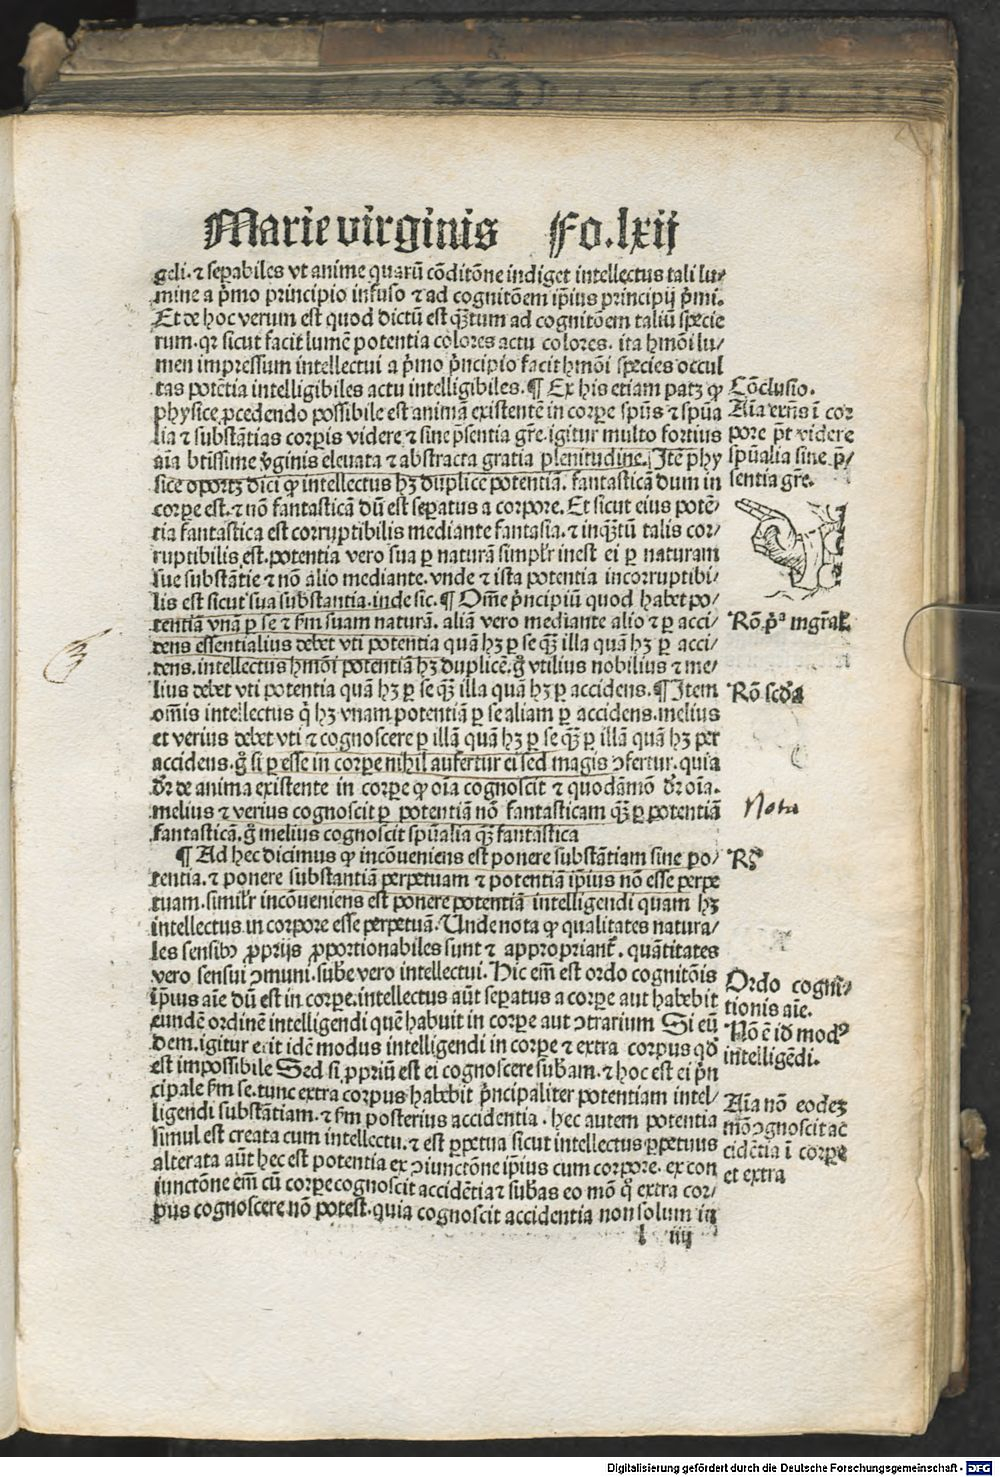 Marie virginis Fo. lxij
geli. ⁊ sepabiles vt anime quarũ cõditõne indiget intellectus tali lu⸗
mine a p̃mo principio infuso ⁊ ad cognitõem ip̃ius principij p̃mi.
Et de hoc verum est quod dictũ est q̃ꝫtum ad cognitõem taliũ specie
rum. qꝛ sicut facit lumẽ potentia colores actu colores. ita hm̃õi lu⸗
men impressum intellectui a p̃mo p̃ncipio facit hm̃õi species occul
tas potẽtia intelligibiles actu intelligibiles. ¶ Ex his etiam patꝫ ꝙ
physice ꝓcedendo possibile est animã existentẽ in corꝑe spũs ⁊ spũa
lia ⁊ substãtias corpis videre ⁊ sine p̃sentia gr̃e. igitur multo fortius
aĩa btissime ṽginis eleuata ⁊ abstracta gratia plenitudine. Itẽ phy
sice oportꝫ dici ꝙ intellectus hꝫ duplicẽ potentiã. fantasticã dum in
corꝑe est. ⁊ nõ fantasticã dũ est sepatus a corpore. Et sicut eius potẽ⸗
tia fantastica est corruptibilis mediante fantasia. ⁊ inq̃ꝫtũ talis cor⸗
ruptibilis est. potentia vero sua ꝑ naturã simpl'r inest ei ꝑ naturam
sue substãtie ⁊ nõ alio mediante. vnde ⁊ ista potentia incorruptibi⸗
lis est sicut sua substantia. inde sic. ¶ Om̃e p̃ncipiũ quod habet po⸗
tentiã vnã ꝑ se ⁊ fm suam naturã. aliã vero mediante alio ⁊ ꝑ acci⸗
dens essentialius debet vti potentia quã hꝫ ꝑ se q̃ꝫ illa quã hꝫ ꝑ acci⸗
dens. intellectus hm̃õi potentiã hꝫ duplicẽ. g̊ vtilius nobilius ⁊ me⸗
lius debet vti potentia quã hꝫ ꝑ se q̃ꝫ illa quã hꝫ ꝑ accidens. ¶ Item
om̃is intellectus q̇ hꝫ vnam potentiã ꝑ se aliam ꝑ accidens. melius
et verius debet vti ⁊ cognoscere ꝑ illã quã hꝫ ꝑ se q̃ꝫ ꝑ illã quã hꝫ per
accidens. g̊ si ꝑ esse in corꝑe nihil aufertur ei sed magis ↄfertur. quia
dr̃ de anima existente in corꝑe ꝙ oĩa cognoscit ⁊ quodãmõ dr̃ oĩa.
melius ⁊ verius cognoscit ꝑ potentiã nõ fantasticam q̃ꝫ ꝑ potentiã
fantasticã. g̊ melius cognoscit spũalia q̃ꝫ fantastica
¶ Ad hec dicimus ꝙ incõueniens est ponere substãtiam sine po⸗
tentia. ⁊ ponere substantiã perpetuam ⁊ potentiã ip̃ius nõ esse perpe
tuam. simil'r incõueniens est ponere potentiã intelligendi quam hꝫ
intellectus in corpore esse perpetuã. Unde nota ꝙ qualitates natura⸗
les sensibꝰ ꝓprijs ꝓportionabiles sunt ⁊ appropriant̃. quãtitates
vero sensui ↄmuni. sub̃e vero intellectui. Hic em̃ est ordo cognitõis
ip̃ius aĩe dũ est in corꝑe. intellectus aũt sepatus a corꝑe aut habebit
eundẽ ordinẽ intelligendi quẽ habuit in corꝑe aut ↄtrarium Si eũ
dem. igitur erit idẽ modus intelligendi in corꝑe ⁊ extra corpus qd̃
est impossibile Sed si ꝓpriũ est ei cognoscere sub̃am. ⁊ hoc est ei p̃n
cipale fm se. tunc extra corpus habebit p̃ncipaliter potentiam intel⸗
ligendi substãtiam. ⁊ fm posterius accidentia. hec autem potentia
simul est creata cum intellectu. ⁊ est ꝑpetua sicut intellectus ꝑpetuus
alterata aũt hec est potentia ex ↄiunctõne ip̃ius cum corpore. ex con
iunctõne em̃ cũ corꝑe cognoscit accidẽtia ⁊ sub̃as eo mõ q̊ extra cor⸗
pus cognoscere nõ potest. quia cognoscit accidentia non solum in
l iiij
Cõclusio.
Aĩa exñs ĩ cor
pore p̃t videre
spũalia sine p̃⸗
sentia gr̃e.
Rõ. p̃ᵃ mgr̃al'
Rõ scd̃a
Nota
Rñ
Ordo cogni⸗
tionis aĩe.
Nõ ẽ id̃ modꝰ
intelligẽdi.
Aĩa nõ eodeꝫ
mõ ↄgnoscit ac
cidẽtia ĩ corꝑe
et extra
Digitalisierung gefördert durch die Deutsche Forschungsgemeinschaft - DFG